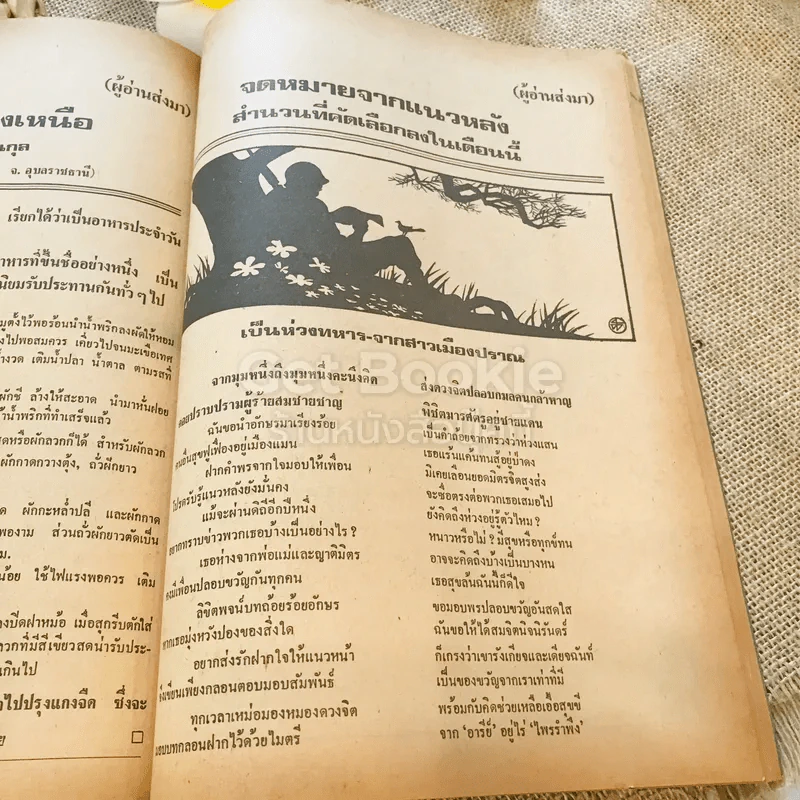 (ผู้อ่านส่งมา)
งเหนือ
นกุล
จ. อุบลราชธานี)
เรียกได้ว่าเป็นอาหารประจำวัน
าหารที่ขึ้นชื่ออย่างหนึ่ง เป็น
นิยมรับประทานกันทั่วๆไป
มูตั้งไว้พอร้อนนำน้ำพริกลงผัดให้หอม
งไปพอสมควร เคี่ยวไปจนมะเขือเทศ
างวด เติมน้ำปลา น้ำตาล ตามรสที่
ักชี ล้างให้สะอาด นำมาหั่นฝอย
น้ำพริกที่ทำเสร็จแล้ว
สดหรือผักลวกก็ได้ สำหรับผักลวก
ผักกาดกวางตุ้ง, ถั่วฝักยาว
ผักกะหล่ำปลี และผักกาด
พองาม ส่วนถั่วฝักยาวตัดเป็น
ม.
น้อย ใช้ไฟแรงพอควร เติม
งปิดฝาหม้อ เมื่อสุกรีบตักใส่
ลวกที่มีสีเขียวสดน่ารับประ-
เกินไป
ไปปรุงแกงจืด ซึ่งจะ
ย
(ผู้อ่านส่งมา)
จดหมายจากแนวหลัง
สำนวนที่คัดเลือกลงในเดือนนี้
เป็นห่วงทหาร-จากสาวเมืองปราณ
จากมุมหนึ่งถึงมุมหนึ่งคะนึงคิด ส่งดวงจิตปลอบกมลคนกล้าหาญ
คอยปราบปรามผู้ร้ายสมชายชาญ พิชิตมารศัตรูอยู่ชายแดน
ฉันขอนำอักษรมาเรียงร้อย เป็นคำถ้อยจากทรวงว่าห่วงแสน
คนอื่นสุขฟูเฟื่องอยู่เมืองแมน เธอแร้นแค้นทนสู้อยู่ป่าดง
ฝากคำพรจากใจมอบให้เพื่อน มิเคยเลือนยอดมิตรจิตสูงส่ง
โปรดรับรู้แนวหลังยังมั่นคง จะซื่อตรงต่อพวกเธอเสมอไป
แม้จะผ่านดิถีอีกปีหนึ่ง ยังคิดถึงห่วงอยู่รู้ตัวไหม?
อยากทราบข่าวพวกเธอบ้างเป็นอย่างไร? หนาวหรือไม่? มีสุขหรือทุกข์ทน
เธอห่างจากพ่อแม่และญาติมิตร อาจจะคิดถึงบ้างเป็นบางหน
คงมีเพื่อนปลอบขวัญกันทุกคน เธอสุขล้นฉันนี้ก็ดีใจ
ลิขิตพจน์บทถ้อยร้อยอักษร ขอมอบพรปลอบขวัญอันสดใส
หากเธอมุ่งหวังปองของสิ่งใด ฉันขอให้ได้สมจิตนิจนิรันดร์
อยากส่งรักฝากใจให้แนวหน้า ก็เกรงว่าเขารังเกียจและเดียจฉันท์
จึงเขียนเพียงกลอนตอบมอบสัมพันธ์ เป็นของขวัญจากเราเท่าที่มี
ทุกเวลาเหม่อมองหมองดวงจิต พร้อมกับคิดช่วยเหลือเอื้อสุขขี
มอบบทกลอนฝากไว้ด้วยไมตรี จาก 'อารีย์' อยู่ไร่ 'ไพรรำพึง'
Get Bookie